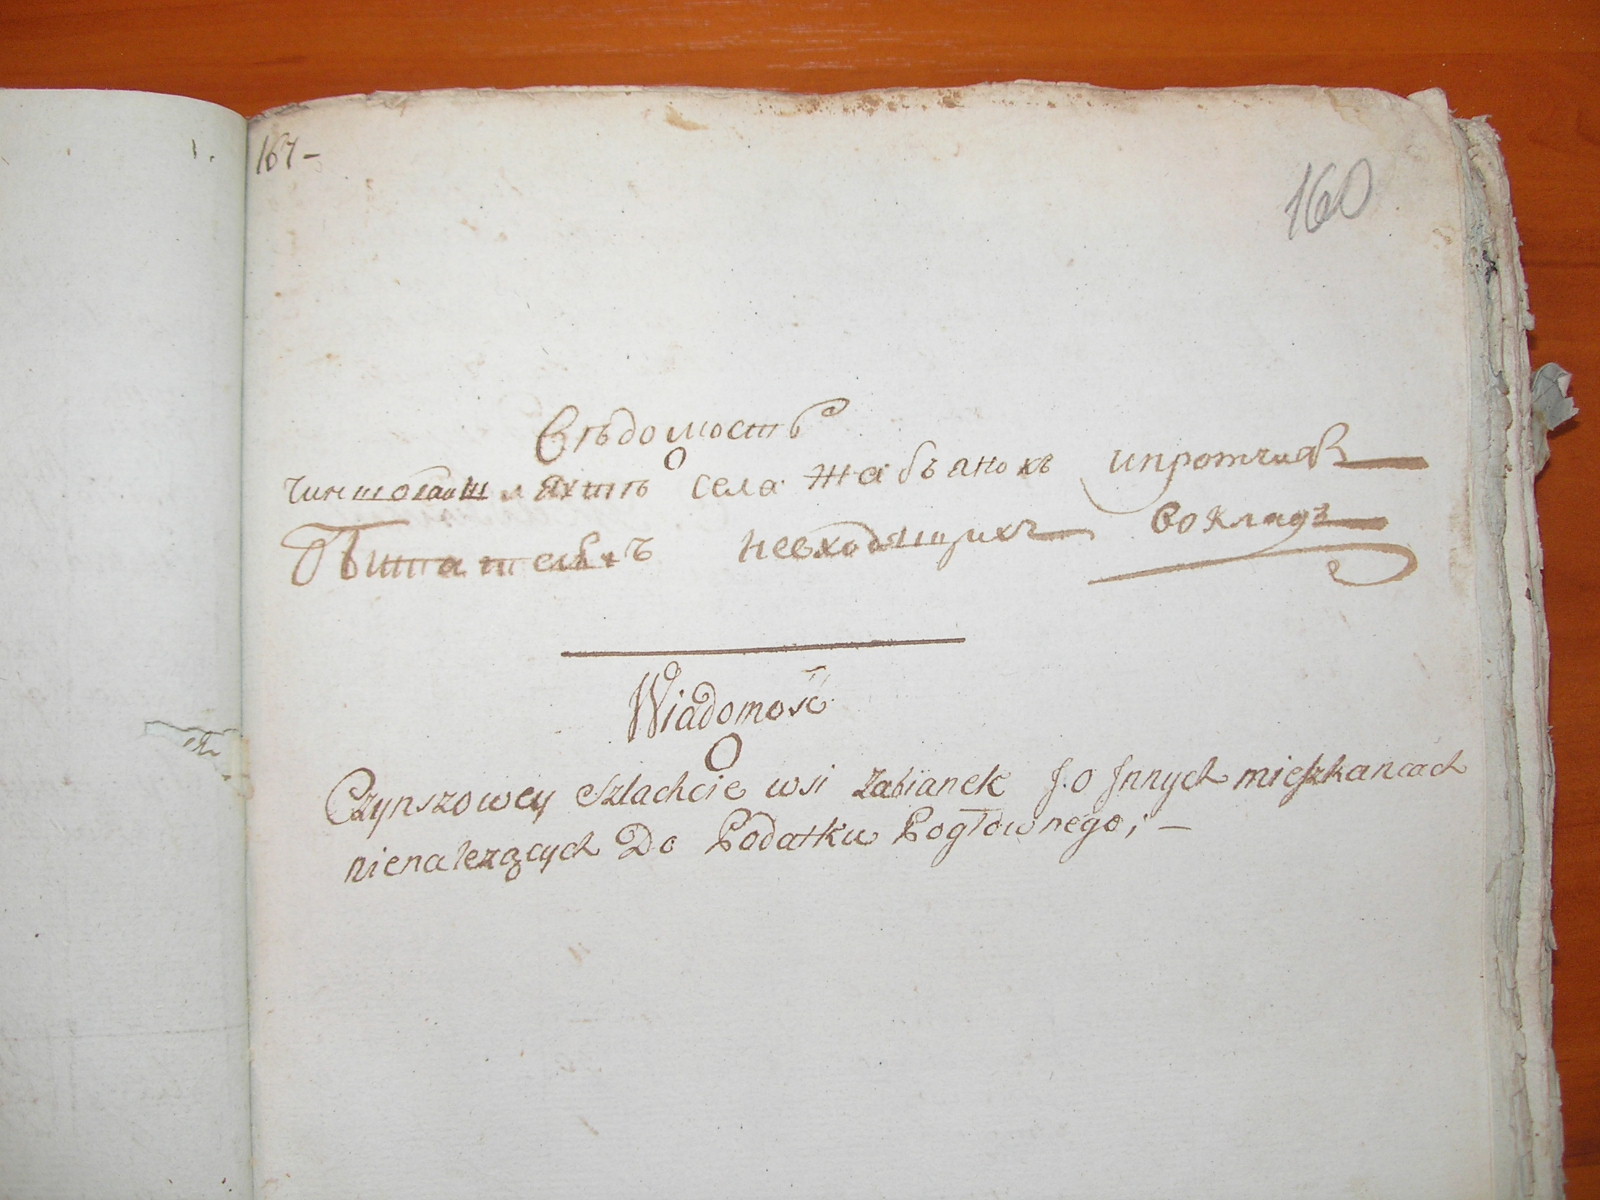 167-
160
Вѣдомость
О
чиншовой шляхтѣ села Жабъянокъ ипротчихъ
Обитателехъ невходящихъ вокладъ
Wiadomość
O
Czynszowey szlachcie wsi Zabianek J.o Jnnych mieszkancach
nienalezących Do Podatku Pogłównego;-